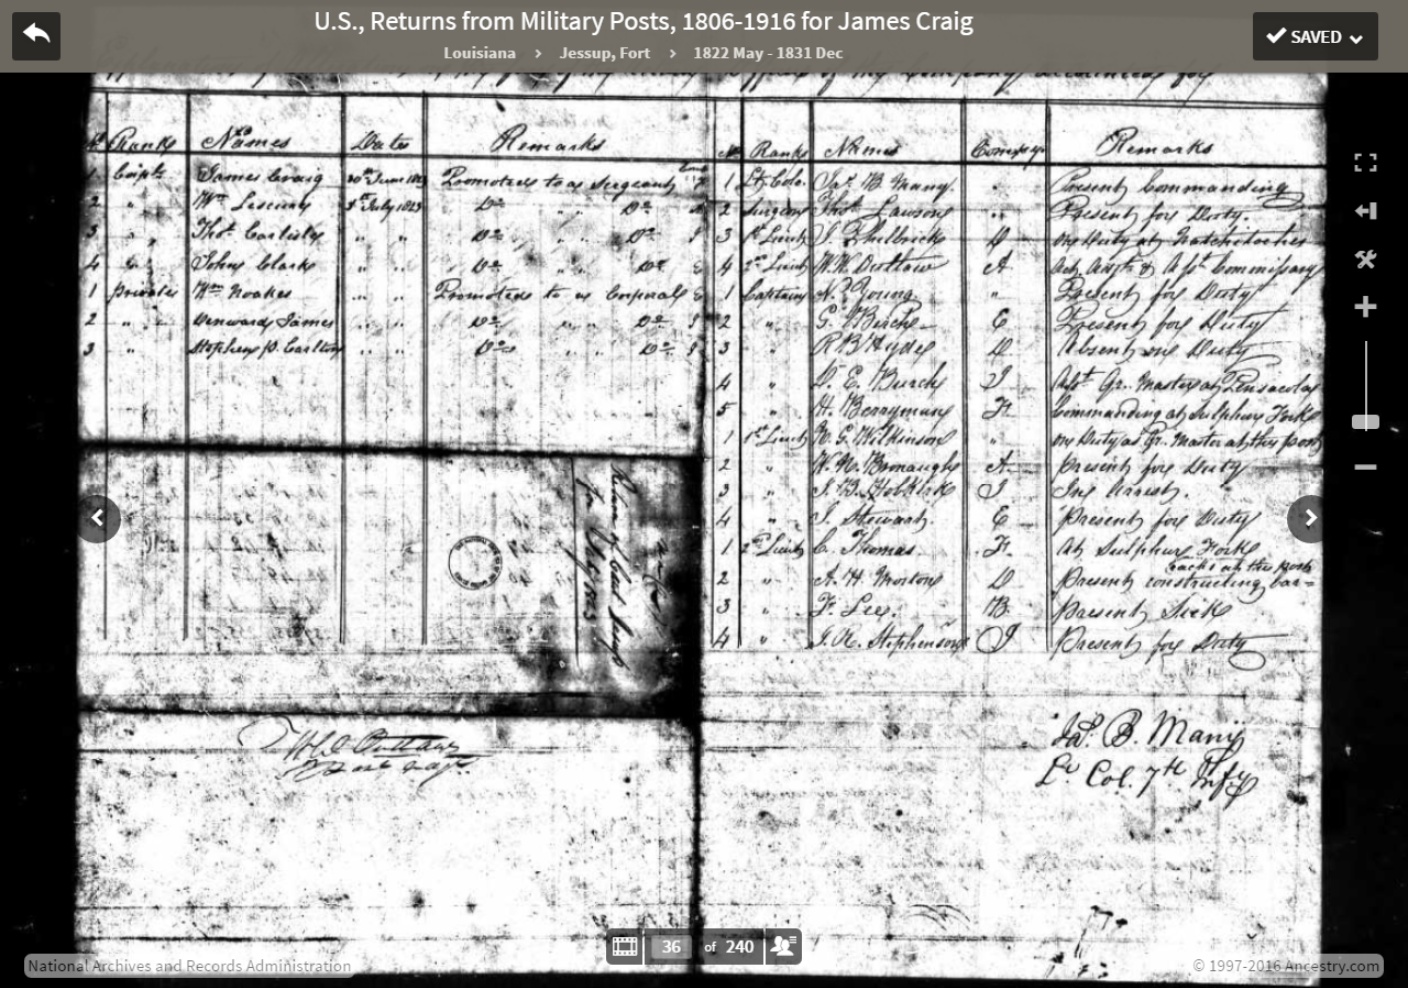 U.S., Returns from Military Posts, 1806-1916 for James Craig
SAVED
Louisiana > Jessup, Fort > 1822 May - 1831 Dec
No Ranks Names Dates Remarks
1 Corpl. James Craig 20th June 1823 Promoted to a Sergeant
2 " Wm 1st July 1823 Do " " Do
3 " Thos. Carlisle " " Do " " Do
4 " John Clark " " Do " " Do E
1 Private Wm Noakes " " Promoted to a Corporal E
2 " James " " Do " " Do
3 " Stephen P. Carlton " " Do " " Do
Return of
for 1823
No Ranks Names Company Remarks
1 Lt. Colo. Jas. B. Many. " Present Commanding
2 Surgeon Thos. Lawson " Present for Duty.
3 1st Lieut J. Philbrick D on Duty at Natchitoches
4 2nd Lieut W.W. Outlaw A Act. Adjt. & Asst. Commissary
1 Captain N. Young " Present for Duty
2 " G. Birch E Present for Duty
3 " R B Hyde D Absent on Duty
4 " D. E. Burch I Asst. Qr. Master at Pensacola
5 " H. Berryman F. Commanding at Sulphur Fork
1 1st Lieut N. G. Wilkinson " on Duty as Qr. Master at this post
2 " W. N. Bronaugh A Present for Duty
3 " S. B. Hobkirk I In Arrest.
4 " J. Stewart E Present for Duty
1 2nd Lieut C. Thomas F. At Sulphur Fork
2 " A. H. Morton D Present constructing bar=
racks at this post
3 " F. Lee. B. Present Sick
4 " J. R. Stephenson I Present for Duty
Outlaw
Jas. B. Many
Lt Col. 7th Infy
36 of 240
National Archives and Records Administration
© 1997-2016 Ancestry.com